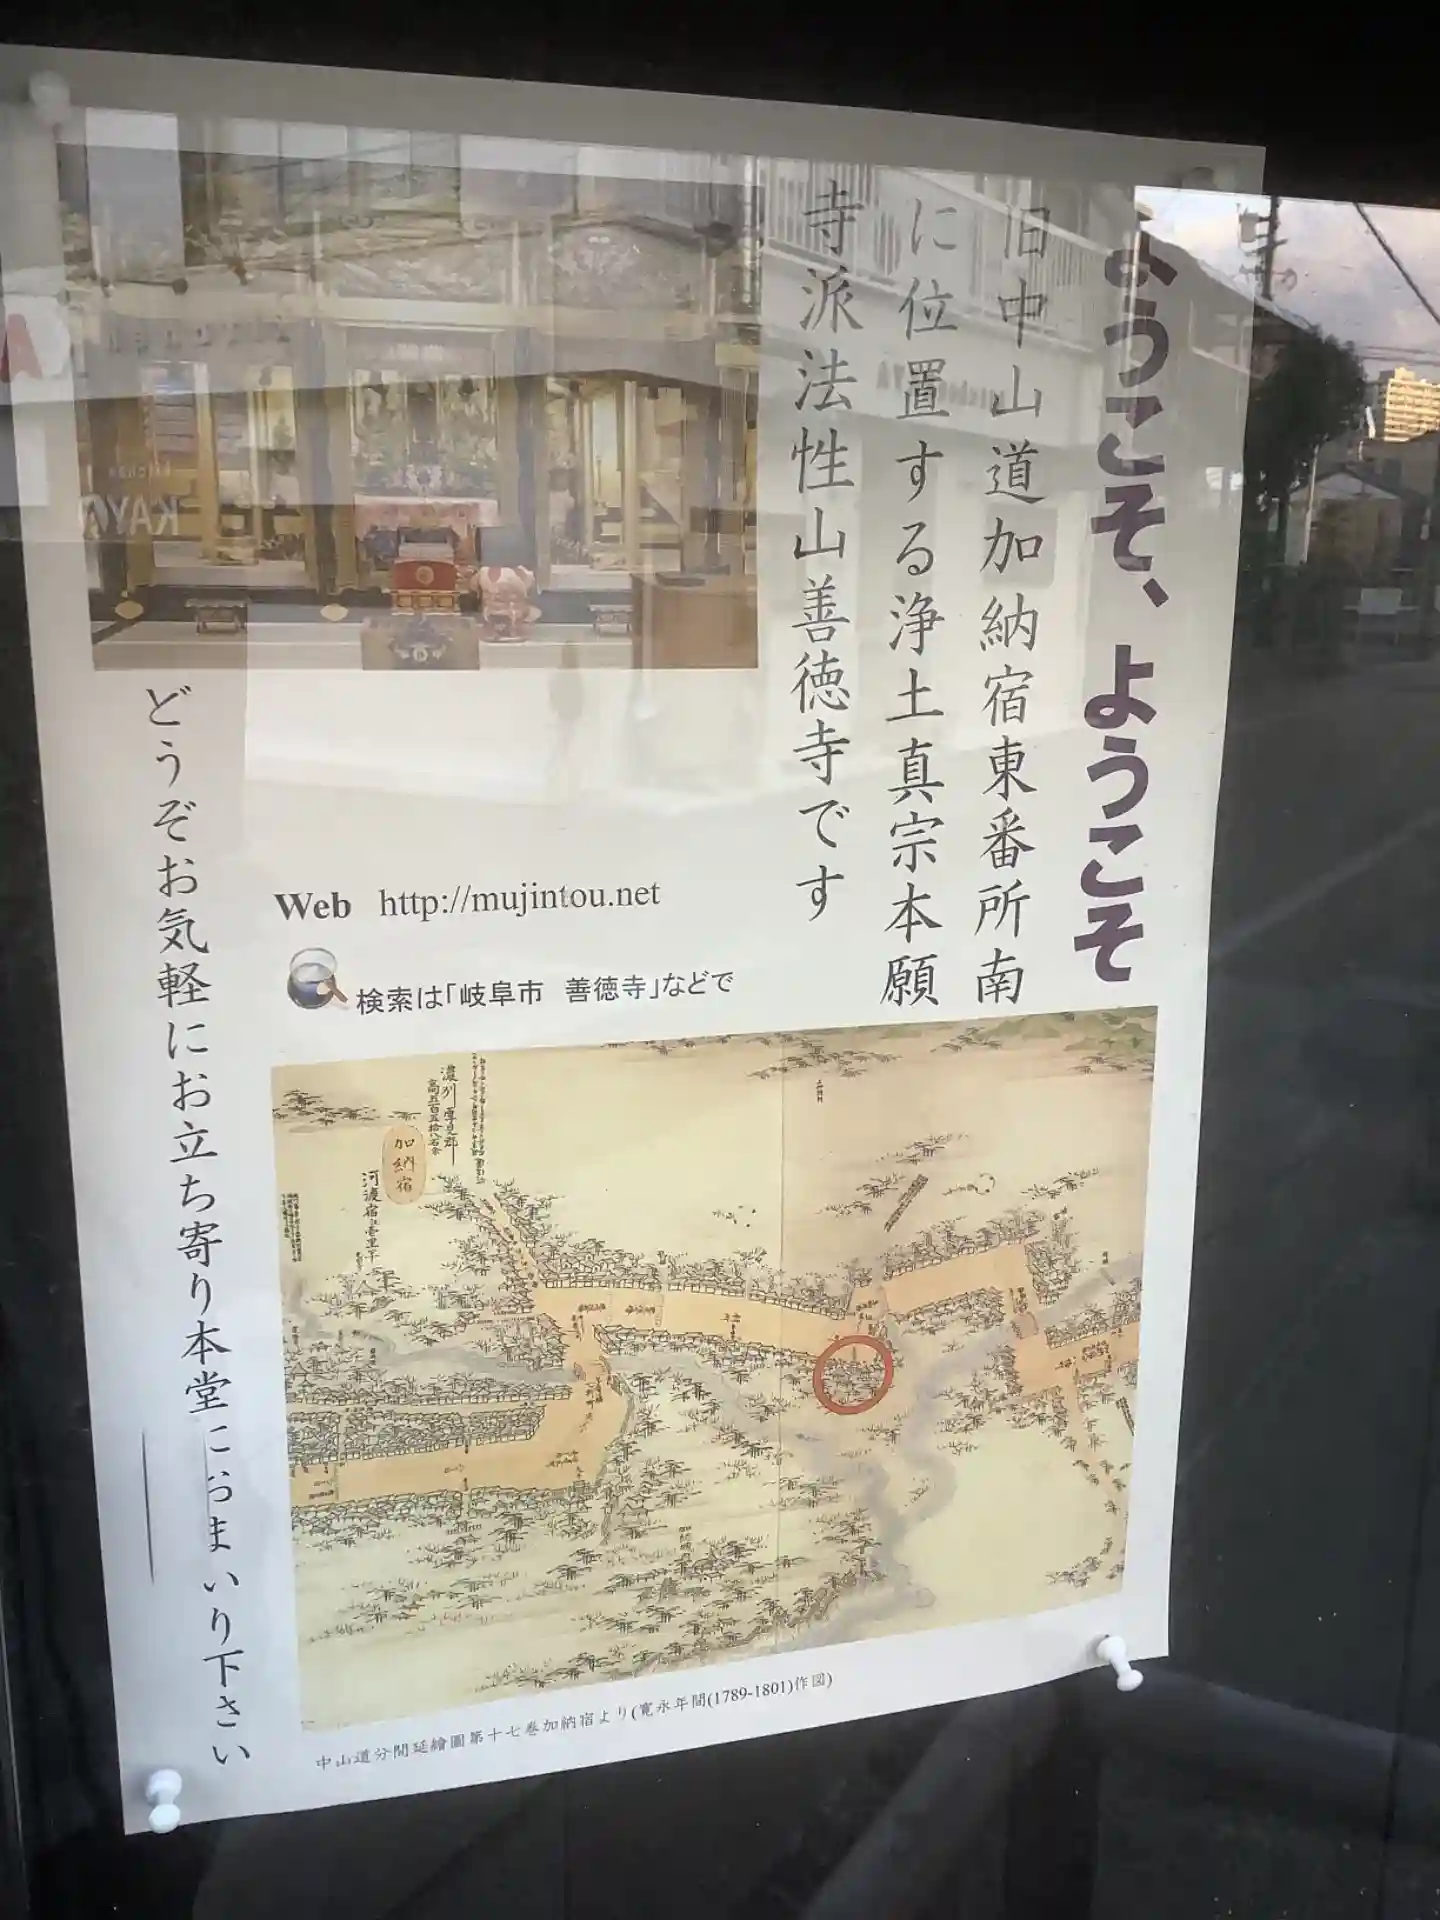 ようこそ、ようこそ
旧中山道加納宿東番所南
に位置する浄土真宗本願
寺派法性山善徳寺です
Web http://mujintou.net
検索は「岐阜市 善徳寺」などで
どうぞお気軽にお立ち寄り本堂におまいり下さい
濃州厚見郡
高五百五拾八石余
加納宿
河渡宿江壱里半
中山道分間延繪圖第十七巻加納宿より(寛永年間(1789-1801)作図)
KAYA